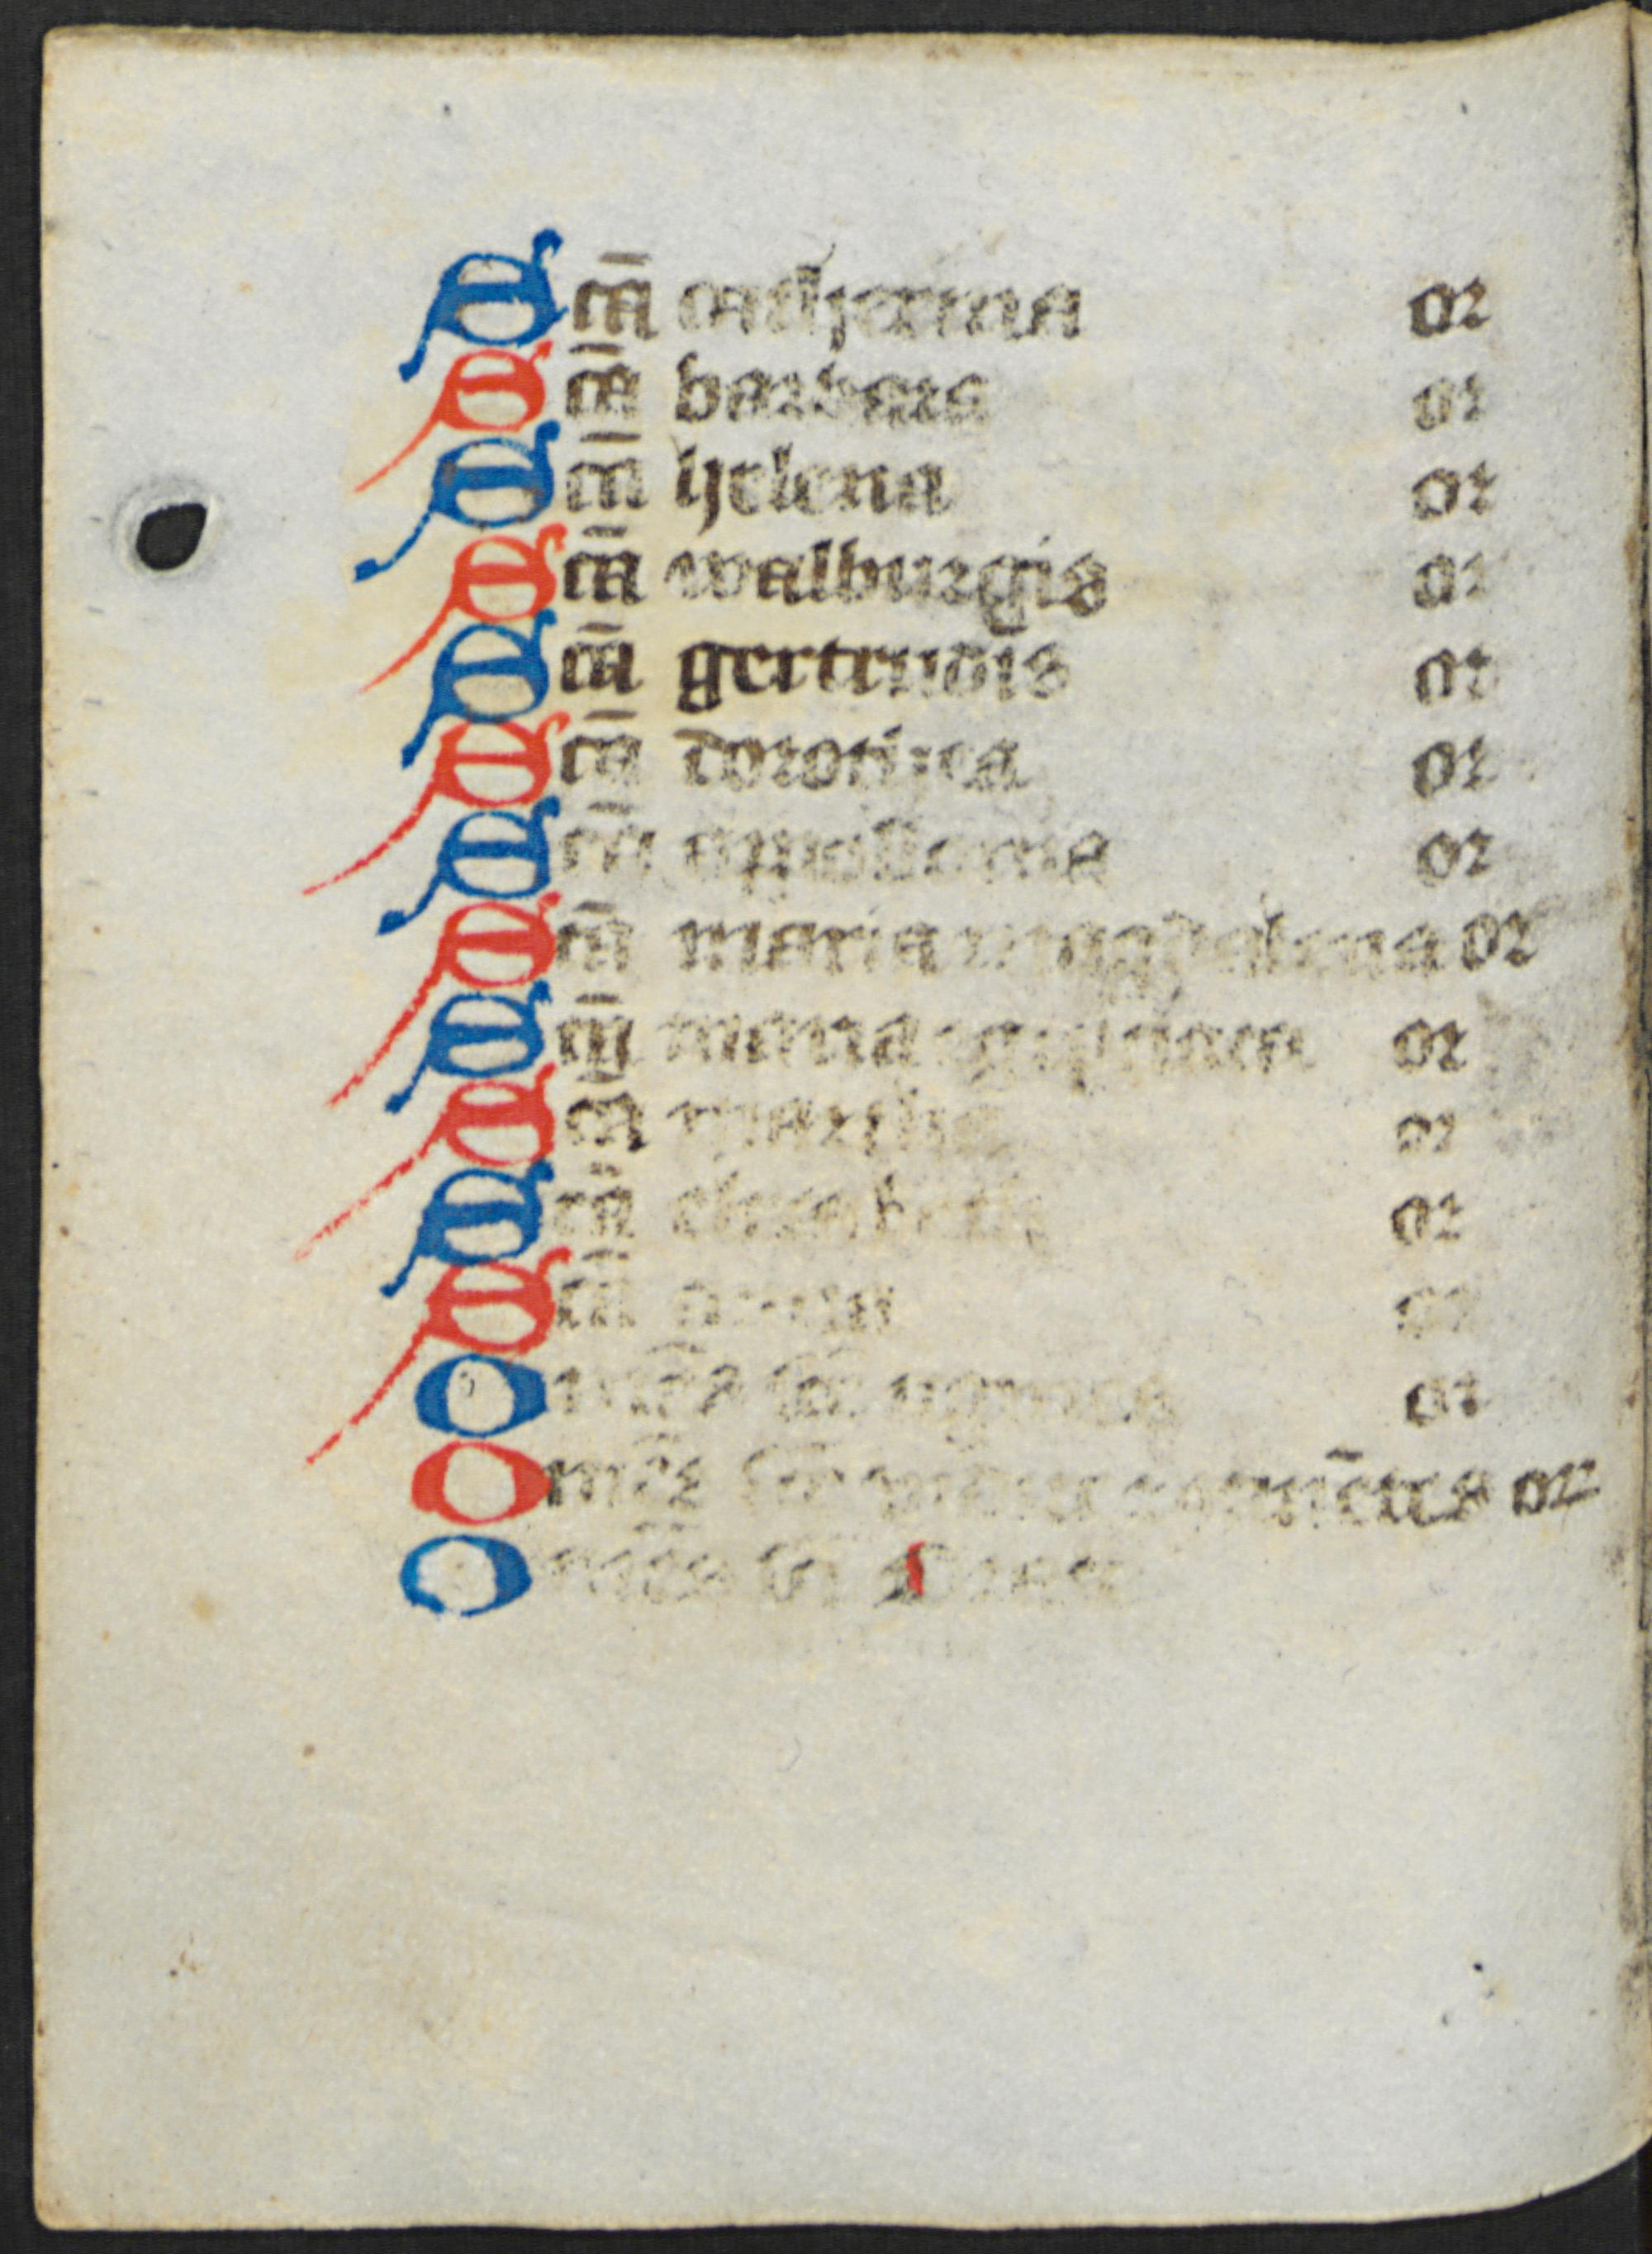 Sc̄a katherina or
Sc̄a barbara or
Sc̄a helena or
Sc̄a walburgis or
Sc̄a gertrudis or
Sc̄a dorothea or
Sc̄a appollonia or
Sc̄a maria magdalena or
Sc̄a maria egyptiaca or
Sc̄a martha or
Sc̄a elizabeth or
Sc̄a or
Om̄es sc̄e or
Om̄es sc̄e or
Om̄es sc̄i